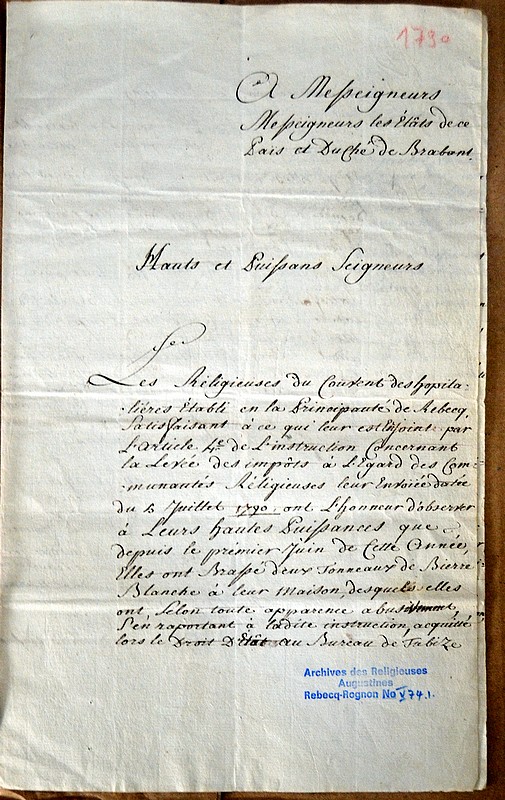 1790
A Messeigneurs
Messeigneurs les Etâts de ce
Païs et Duché de Brabant.
Hauts et Puissans Seigneurs
Les Réligieuses du Couvent des hopita-
-lières Etabli en la Principauté de Rebecq,
Satisfaisant à ce qui leur est Enjoint par
L'article 4e de L'instruction Concernant
la Levée des impôts à L'Egard des Com-
-munautés Réligieuses leur Envoiée datée
du 2 Juillet 1790, ont L'honneur d'observer
à Leurs hautes Puissances que
depuis le prémier Juin de Cette Année,
Elles ont Brassé deux Tonneaux de Bierre
Blanche à leur Maison, desquels elles
ont, Selon toute apparence abusivement,
S'en raportant à ladite instruction, acquitté
lors le Droit D'Etât au Bureau de Tubize
Archives des Religieuses
Augustines
Rebecq-Rognon No V 74.1.